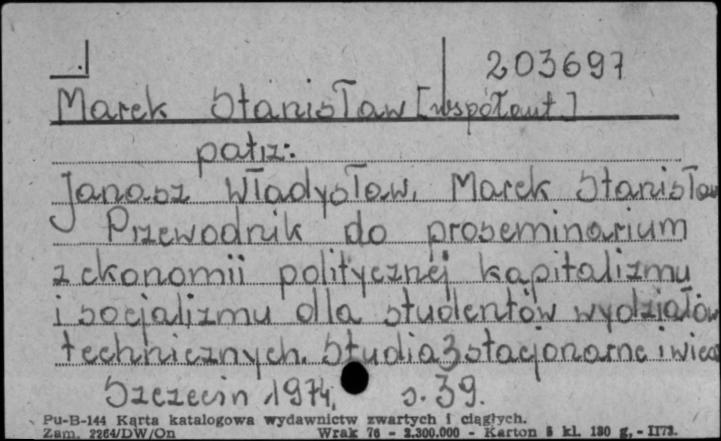 203697
Marek Stanisław [współaut.]
patrz:
Janasz Władysław, Marek Stanisław
Przewodnik do proseminarium
z ekonomii politycznej kapitalizmu
i socjalizmu dla studentów wydziałów
technicznych. Studia stacjonarne i wiecz
Szczecin 1974, s. 39.
Pu-B-144 Karta katalogowa wydawnictw zwartych i ciągłych.
Zam. 2264/DW/On Wrak 76 - 2.300.000 - Karton kl. 180 g, - II73.